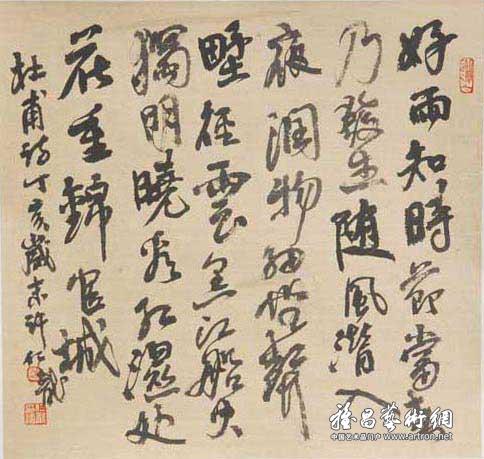 好雨知時節當春
乃發生隨風潛入
夜潤物細無聲
野徑雲黑江船火
獨明曉看紅濕處
花重錦官城
杜甫詩丁亥歲末許仁龍
雅昌藝術網
中国艺术品门户 www.artron.net